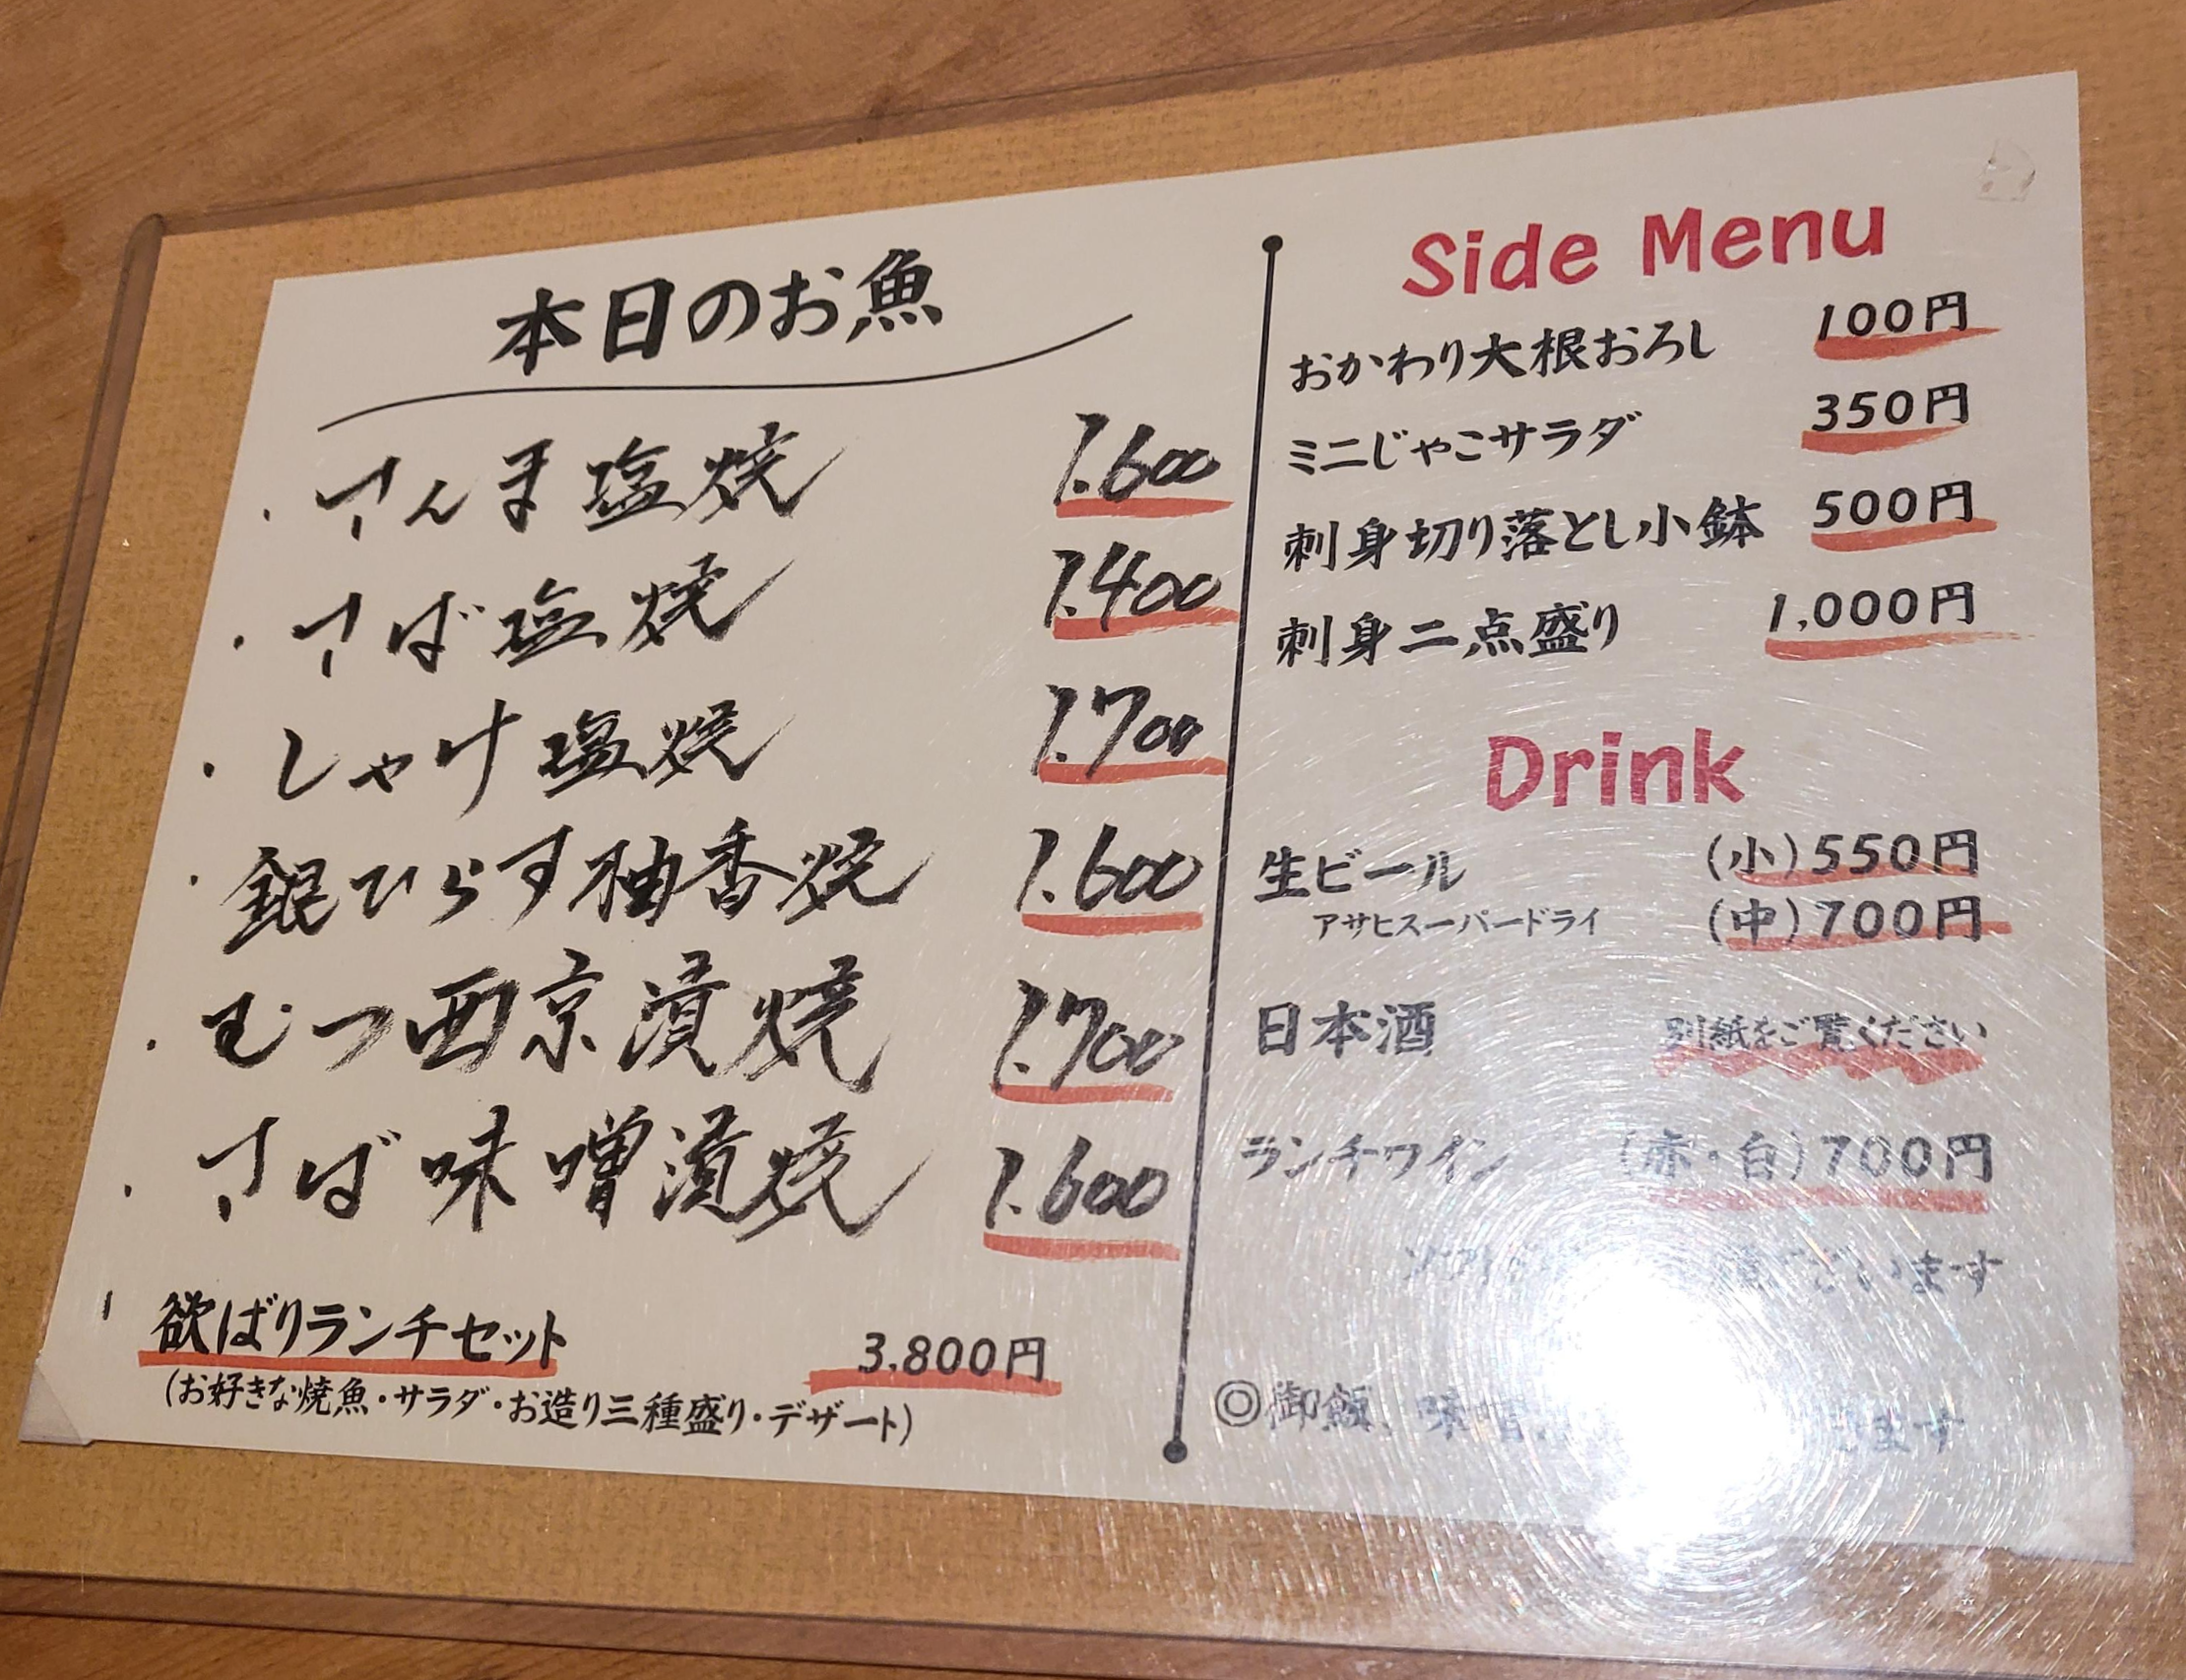 本日のお魚
・さんま塩焼 1.600
・さば塩焼 1.400
・しゃけ塩焼 1.700
・銀ひらす柚香焼 1.600
・むつ西京漬焼 1.700
・さば味噌漬焼 1.600
欲ばりランチセット 3.800円
(お好きな焼魚・サラダ・お造り三種盛り・デザート)
Side Menu
おかわり大根おろし 100円
ミニじゃこサラダ 350円
刺身切り落とし小鉢 500円
刺身二点盛り 1,000円
Drink
生ビール (小)550円
アサヒスーパードライ (中)700円
日本酒 別紙をご覧ください
ランチワイン (赤・白)700円
ございます
◎御飯、味噌 きます